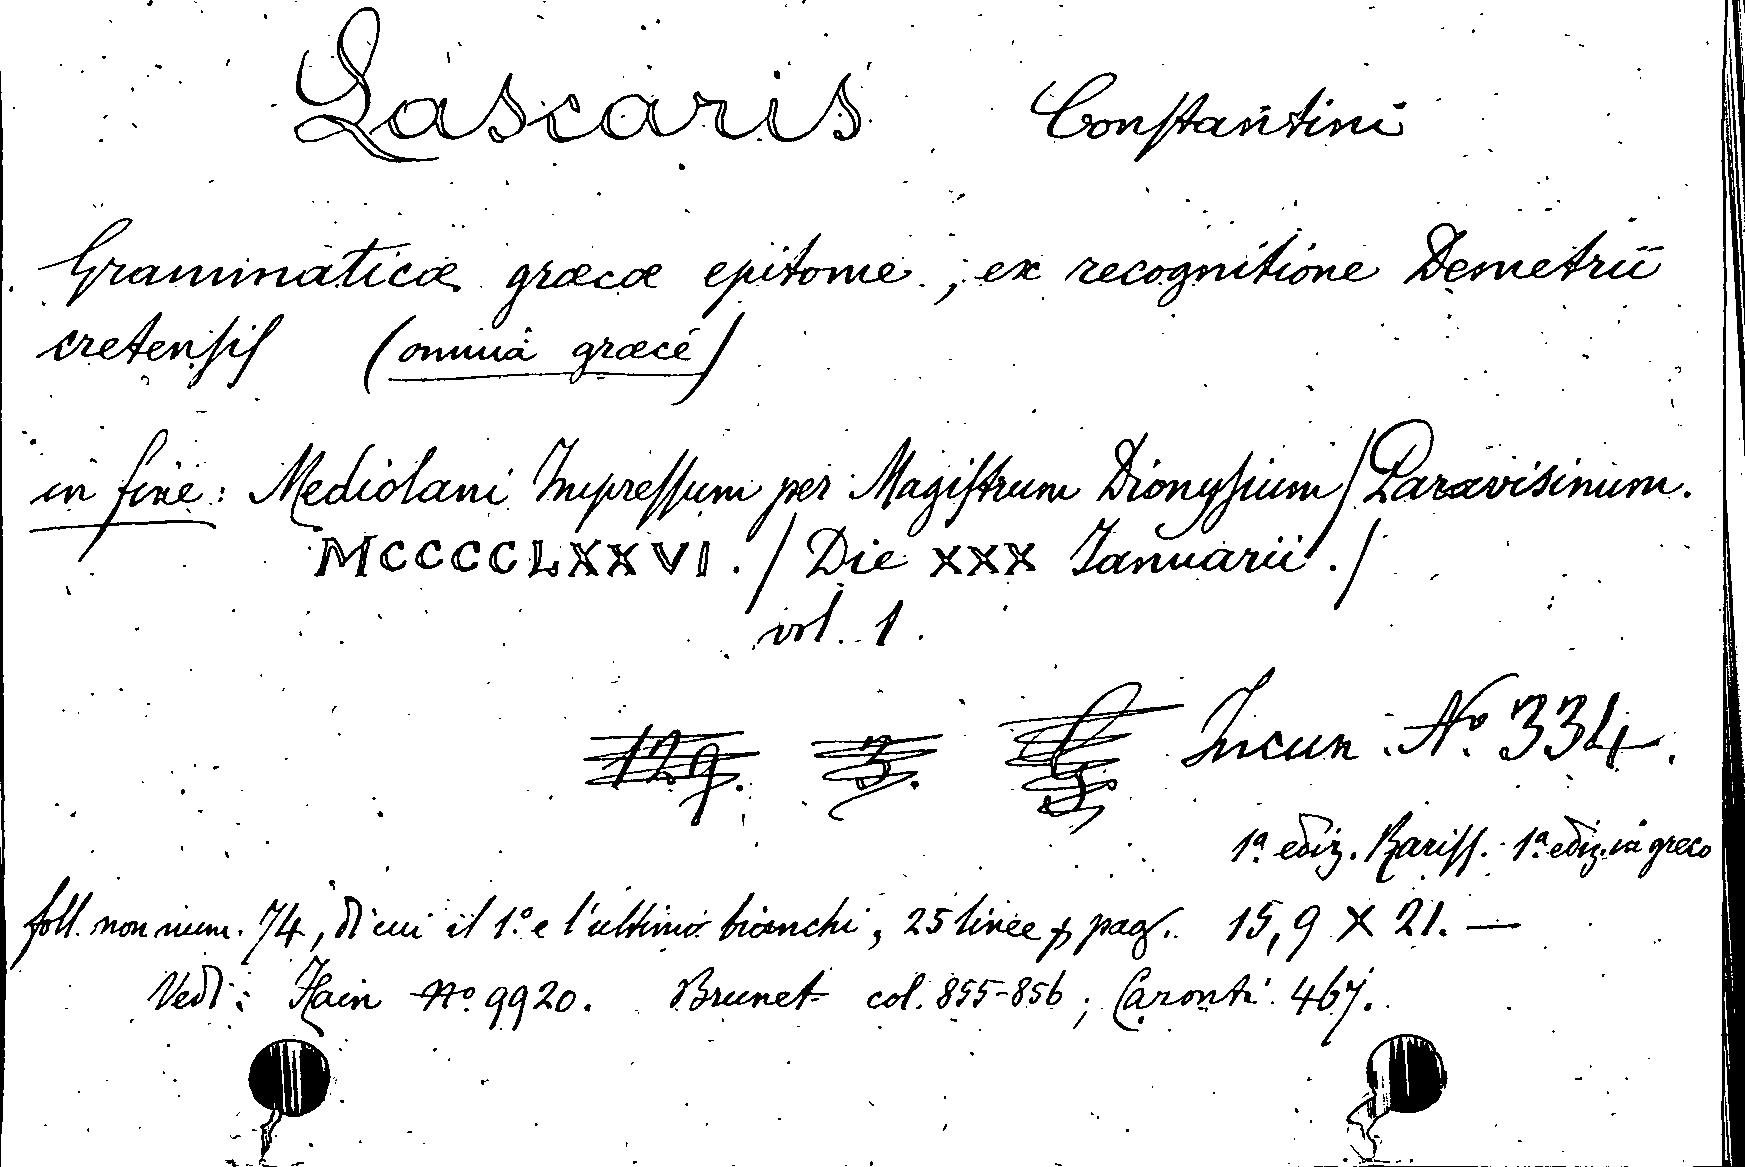 Lascaris Constantini
Grammaticæ græcæ epitome, ex recognitione Demetrii
cretensis (omnia græcè)
in fine: Mediolani Impressum per Magistrum Dionysium / Paravisinum.
MCCCCLXXVI. / Die XXX Ianuarii. /
vol. 1.
129. 3. Incun. Nº. 334.
1ª ediz. Rariss. 1ª ediz. in greco
foll. non num. 74, di cui il 1º e l'ultimo bianchi, 25 linee p pag. 15,9 X 21. —
Vedi: Hain Nº 9920. Brunet col. 855-856; Caronti 467.